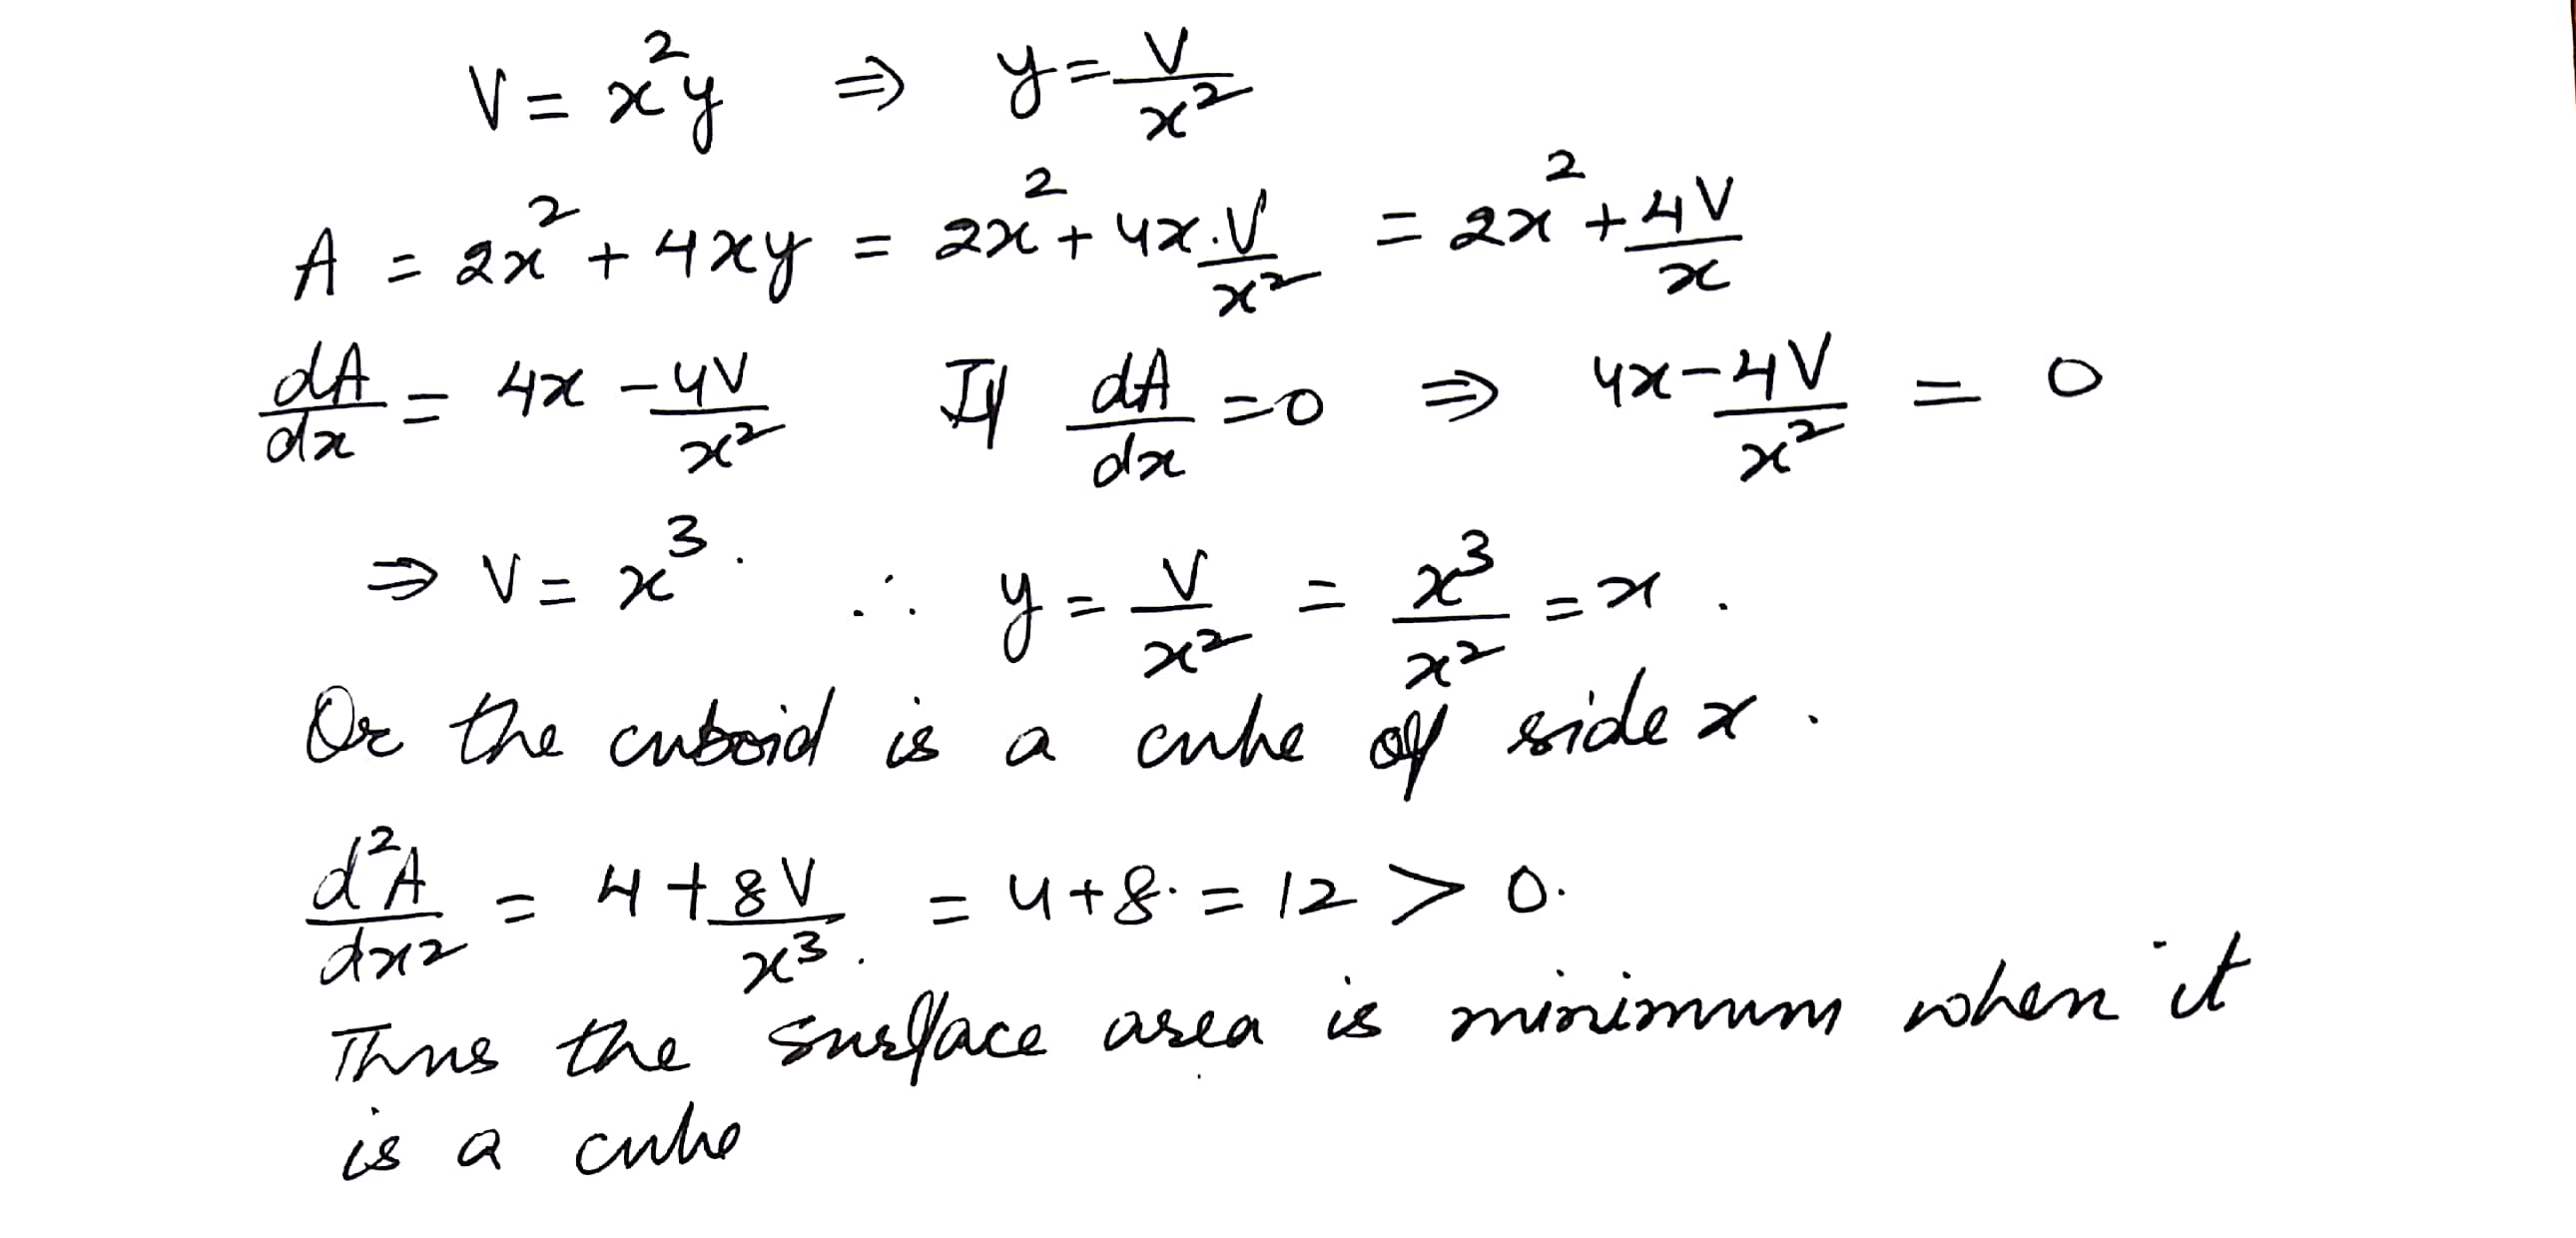 V = x²y ⇒ y = V/x²
A = 2x² + 4xy = 2x² + 4x.V/x² = 2x² + 4V/x
dA/dx = 4x - 4V/x² If dA/dx = 0 ⇒ 4x - 4V/x² = 0
⇒ V = x³. ∴ y = V/x² = x³/x² = x.
Or the cuboid is a cube of side x.
d²A/dx² = 4 + 8V/x³. = 4+8. = 12 > 0.
Thus the surface area is minimum when it
is a cube